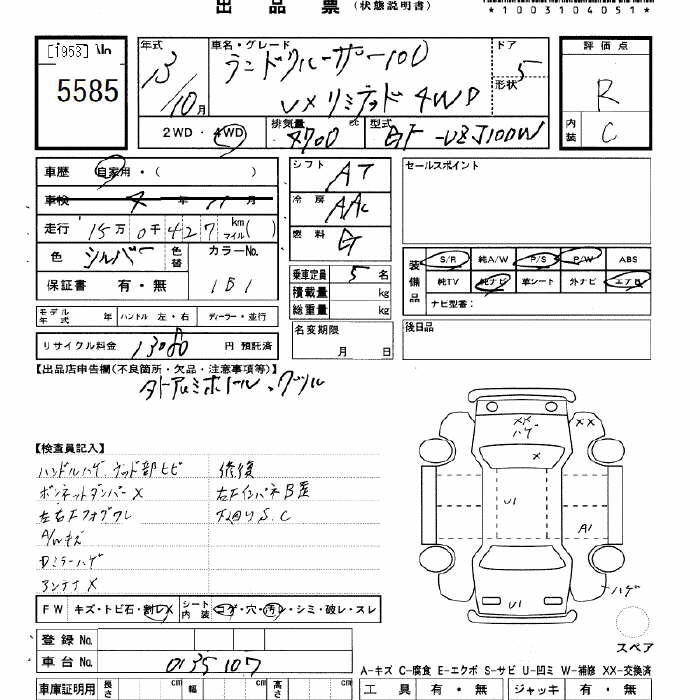 出品票 (状態説明書)
*1003104051*
[1953] Un
5585
年式 13/10月
車名・グレード ランドクルーザー100
VXリミテッド4WD
ドア 5
形状
評価点 R
内装 C
2WD・4WD
排気量 4700 cc
型式 GF-UZJ100W
車歴 自家用・( )
車検 年 11月
走行 15万0千427 km マイル( )
色 シルバー 色替 カラーNo. 1B1
保証書 有・無
シフト AT
冷房 AAC
燃料 G
乗車定員 5名
積載量 kg
総重量 kg
セールスポイント
装備品 S/R 純A/W P/S P/W ABS
純TV 純ナビ 革シート 外ナビ エアB
ナビ型番:
モデル年式 年 ハンドル 左・右 ディーラー・並行
名変期限 月 日
後日品
リサイクル料金 13080 円 預託済
【出品店申告欄(不良箇所・欠品・注意事項等)】
タトアルミホイール、グリル
【検査員記入】
ハンドルハゲ、ウッド部ヒビ 修復
ボンネットダンパーX 右Fインパネ B歪
左右Fフォグワレ 下廻りS.C
A/Wキズ
Dミラーハゲ
アンテナX
XX ハゲ
XX
X
U1
A1
ハゲ
U1
FW キズ・トビ石・割レX シート内装 コゲ・穴・汚レ・シミ・破レ・スレ
スペア
登録No.
車台No. 0135107
A-キズ C-腐食 E-エクボ S-サビ U-凹ミ W-補修 XX-交換済
車庫証明用 長さ cm 幅 cm 高さ cm
工具 有・無 ジャッキ 有・無